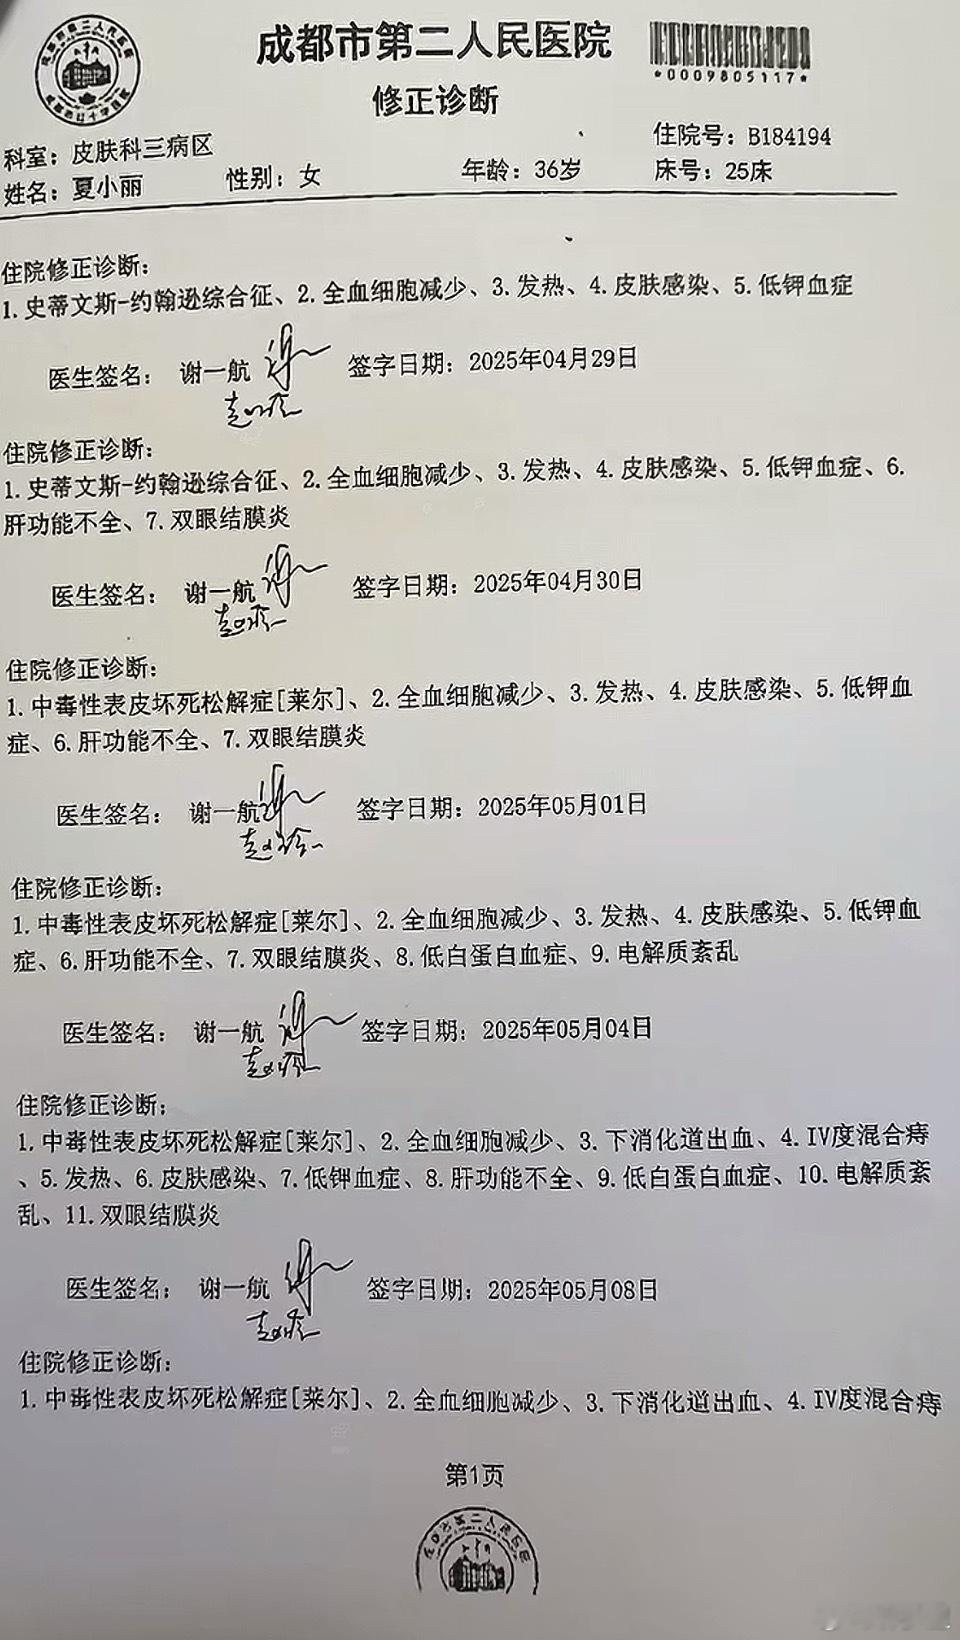 成都市第二人民医院
*0009805117*
修正诊断
科室：皮肤科三病区
住院号：B184194
姓名：夏小丽 性别：女 年龄：36岁 床号：25床
住院修正诊断：
1.史蒂文斯-约翰逊综合征、2.全血细胞减少、3.发热、4.皮肤感染、5.低钾血症
医生签名： 谢一航 签字日期：2025年04月29日
住院修正诊断：
1.史蒂文斯-约翰逊综合征、2.全血细胞减少、3.发热、4.皮肤感染、5.低钾血症、6.
肝功能不全、7.双眼结膜炎
医生签名： 谢一航 签字日期：2025年04月30日
住院修正诊断：
1.中毒性表皮坏死松解症[莱尔]、2.全血细胞减少、3.发热、4.皮肤感染、5.低钾血
症、6.肝功能不全、7.双眼结膜炎
医生签名： 谢一航 签字日期：2025年05月01日
住院修正诊断：
1.中毒性表皮坏死松解症[莱尔]、2.全血细胞减少、3.发热、4.皮肤感染、5.低钾血
症、6.肝功能不全、7.双眼结膜炎、8.低白蛋白血症、9.电解质紊乱
医生签名： 谢一航 签字日期：2025年05月04日
住院修正诊断：
1.中毒性表皮坏死松解症[莱尔]、2.全血细胞减少、3.下消化道出血、4.IV度混合痔
、5.发热、6.皮肤感染、7.低钾血症、8.肝功能不全、9.低白蛋白血症、10.电解质紊
乱、11.双眼结膜炎
医生签名： 谢一航 签字日期：2025年05月08日
住院修正诊断：
1.中毒性表皮坏死松解症[莱尔]、2.全血细胞减少、3.下消化道出血、4.IV度混合痔
第1页